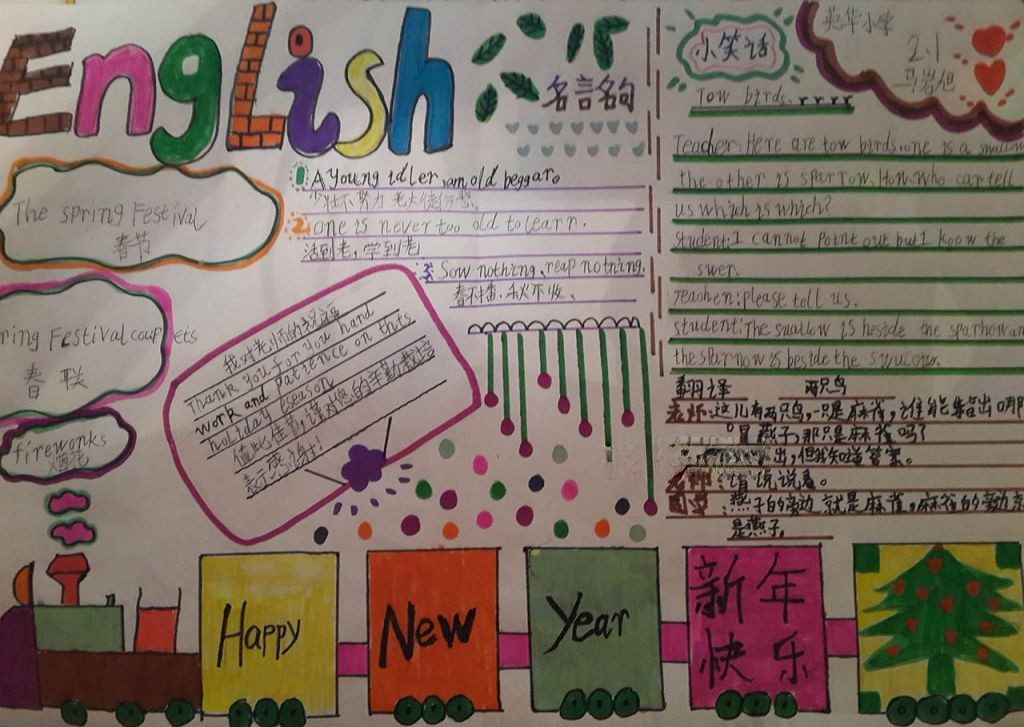 English
The Spring Festival
春节
ring Festival coupets
春联
fireworks
烟花
名言名句
1 A young idler, an old beggar。
少壮不努力 老大徒伤悲。
2. one is never too old to learn.
活到老，学到老
3 Sow nothing, reap notning.
春不播，秋不收、
我对老师的祝福
Thank you for you hand
work and patience on this
holiday season
值此佳节，谨对您的辛勤栽培
表示感谢！
小笑话
Tow birds.
英华小学
2.1
Teacher: Here are tow birds, one is a smallow
the other is sparrow. Now who can tell
us which is which?
Student: I cannot point out but I know the
swer.
Teachen: please tell us.
student: The swallow is beside the sparhow an
the sparnow is beside the
翻译 两只鸟
老师：这儿有两只鸟，一只是麻雀，谁能指出哪
只是燕子，那只是麻雀吗？
出，但我知道答案。
老师：请说说看。
同学：燕子的旁边就是麻雀，麻雀的旁边就
是燕子。
Happy
New
Year
新年
快乐